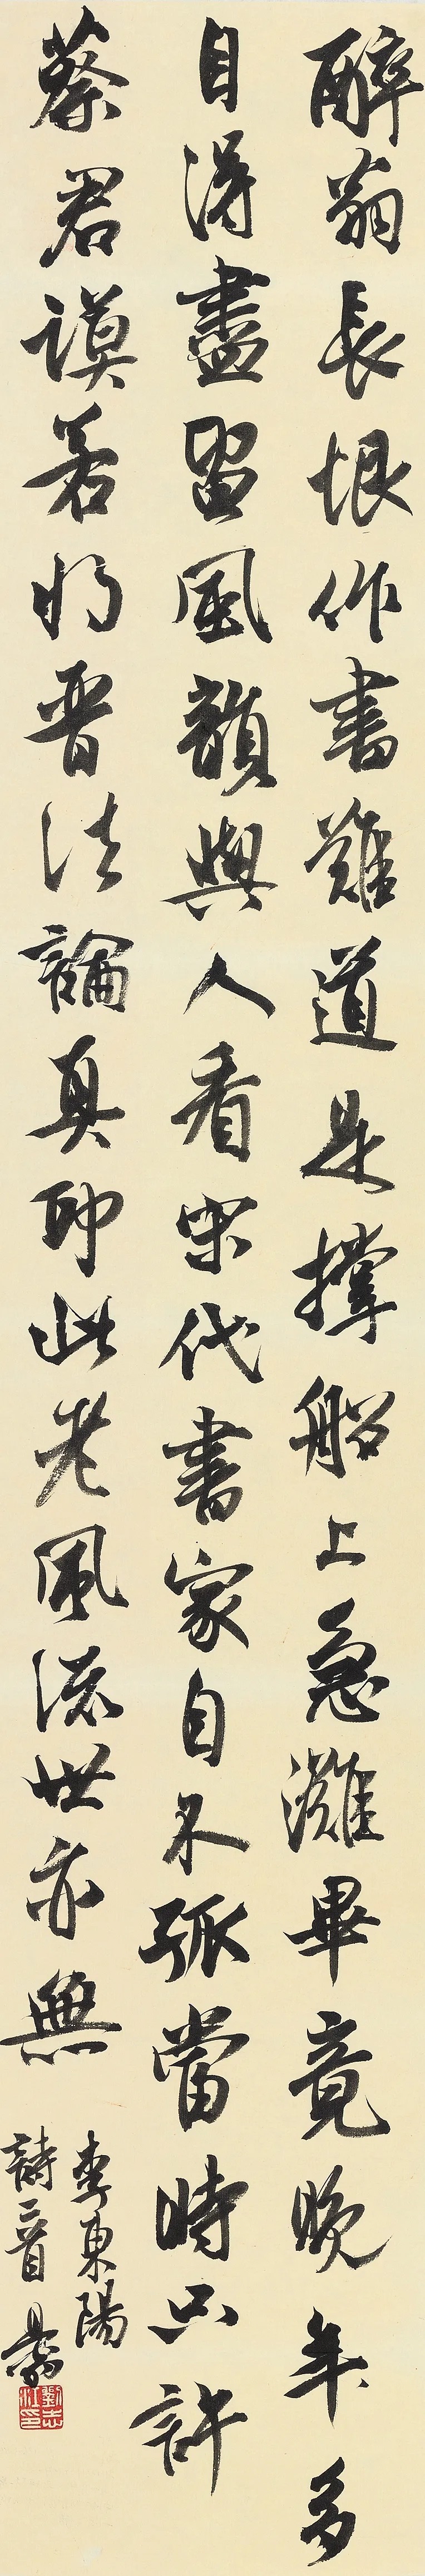 醉翁長恨作書難道是撐船上急灘畢竟晚年多
自得盡留風韻與人看宋代書家自不孤當時只許
蔡君謨若將晉法論真印此老風流世亦無
李東陽
詩二首